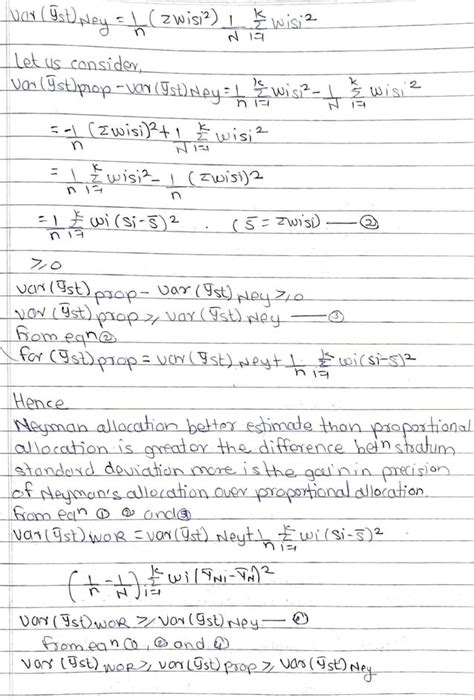 Var(ȳst)Ney = 1/n (Σwisi²) 1/N Σ(i=1 to k) wisi²
Let us consider,
Var(ȳst)prop - Var(ȳst)Ney = 1/n Σ(i=1 to k) wisi² - 1/N Σ(i=1 to k) wisi²
= -1/n (Σwisi)² + 1/N Σ(i=1 to k) wisi²
= 1/n Σ(i=1 to k) wisi² - 1/n (Σwisi)²
= 1/n Σ(i=1 to k) wi(si-s̄)² . (s̄ = Σwisi) — ②
≥0
Var(ȳst)prop - Var(ȳst)Ney ≥ 0
Var(ȳst)prop ≥ Var(ȳst)Ney — ③
from eqn ②
for (ȳst)prop = Var(ȳst)Ney + 1/n Σ(i=1 to k) wi(si-s̄)²
Hence
Neyman allocation better estimate than proportional
allocation is greator the difference betn stratum
standard deviation more is the gain in precision
of Neyman's allocation over proportional allocation.
from eqn ① ② and ③
Var(ȳst)WOR = Var(ȳst)Ney + 1/n Σ(i=1 to k) wi(si-s̄)²
(1/n - 1/N) Σ(i=1 to k) wi(ȳNi-ȳN)²
Var(ȳst)WOR ≥ Var(ȳst)Ney — ④
from eqn ①, ② and ④
Var(ȳst)WOR ≥ Var(ȳst)prop ≥ Var(ȳst)Ney